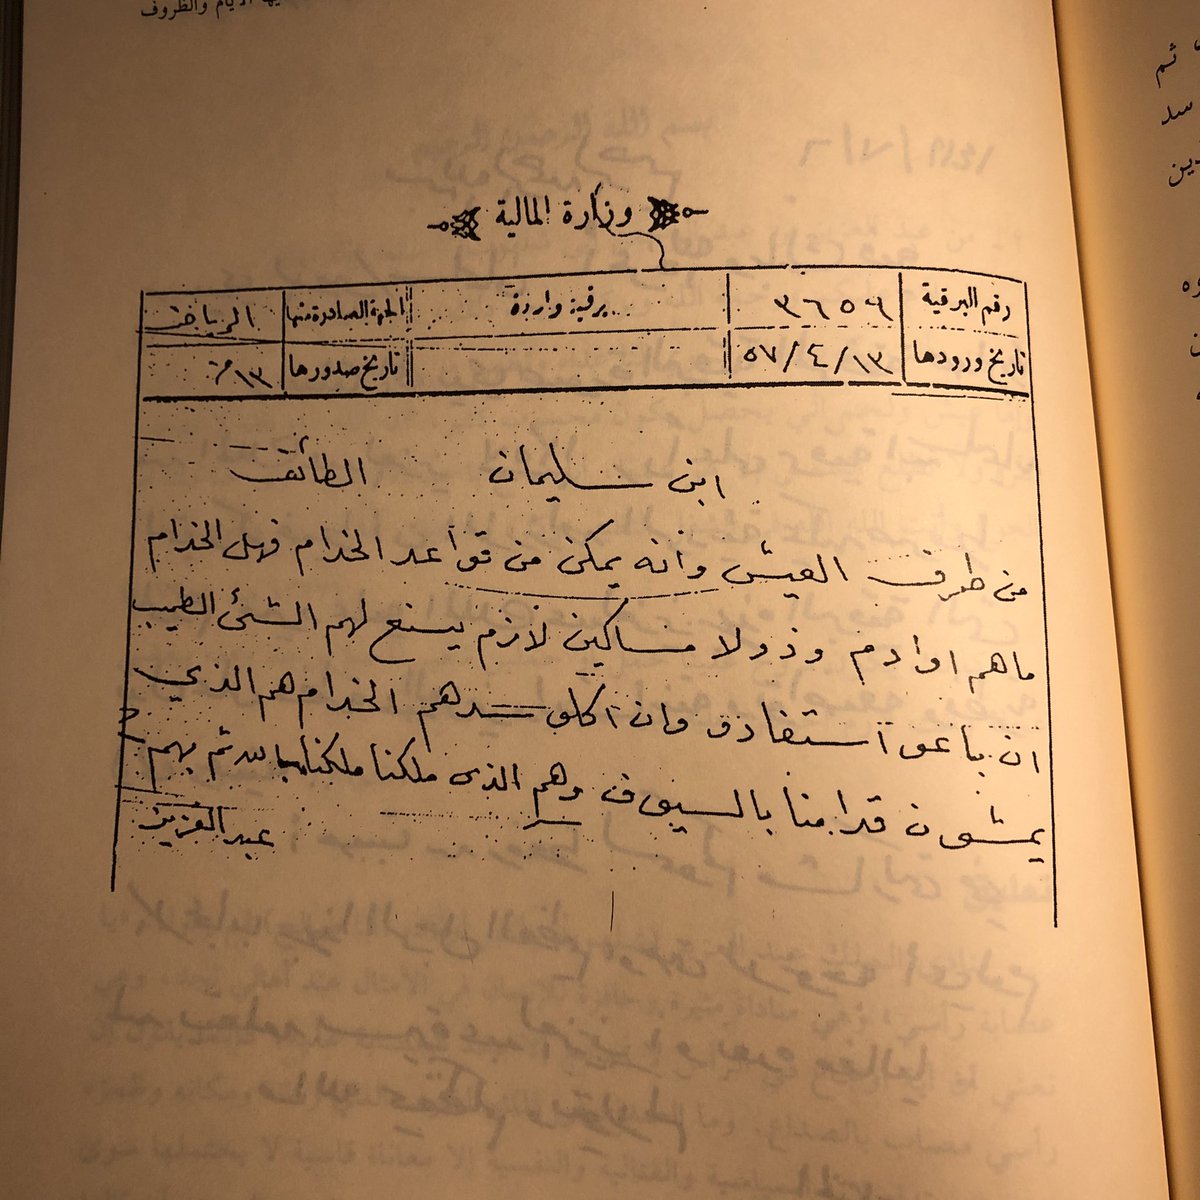 الأيام والظروف
وزارة المالية
رقم البرقية ٣٦٥٩ برقية واردة الجهة الصادرة منها الرياض
تاريخ ورودها ٥٧/٤/١٣ تاريخ صدورها ١٣/
ابن سليمان الطائف
من طرف العيش وأنه يمكن من قواعد الخدام فهل الخدام
ماهم اوادم وذولا مساكين لازم يسنع لهم الشئ الطيب
ان باعو استفادو وان اكلو سدهم الخدام هم الذي
يمشون قدامنا بالسيوف وهم الذى ملكنا ملكنا بالله ثم بهم
عبد العزيز
ثم
سد